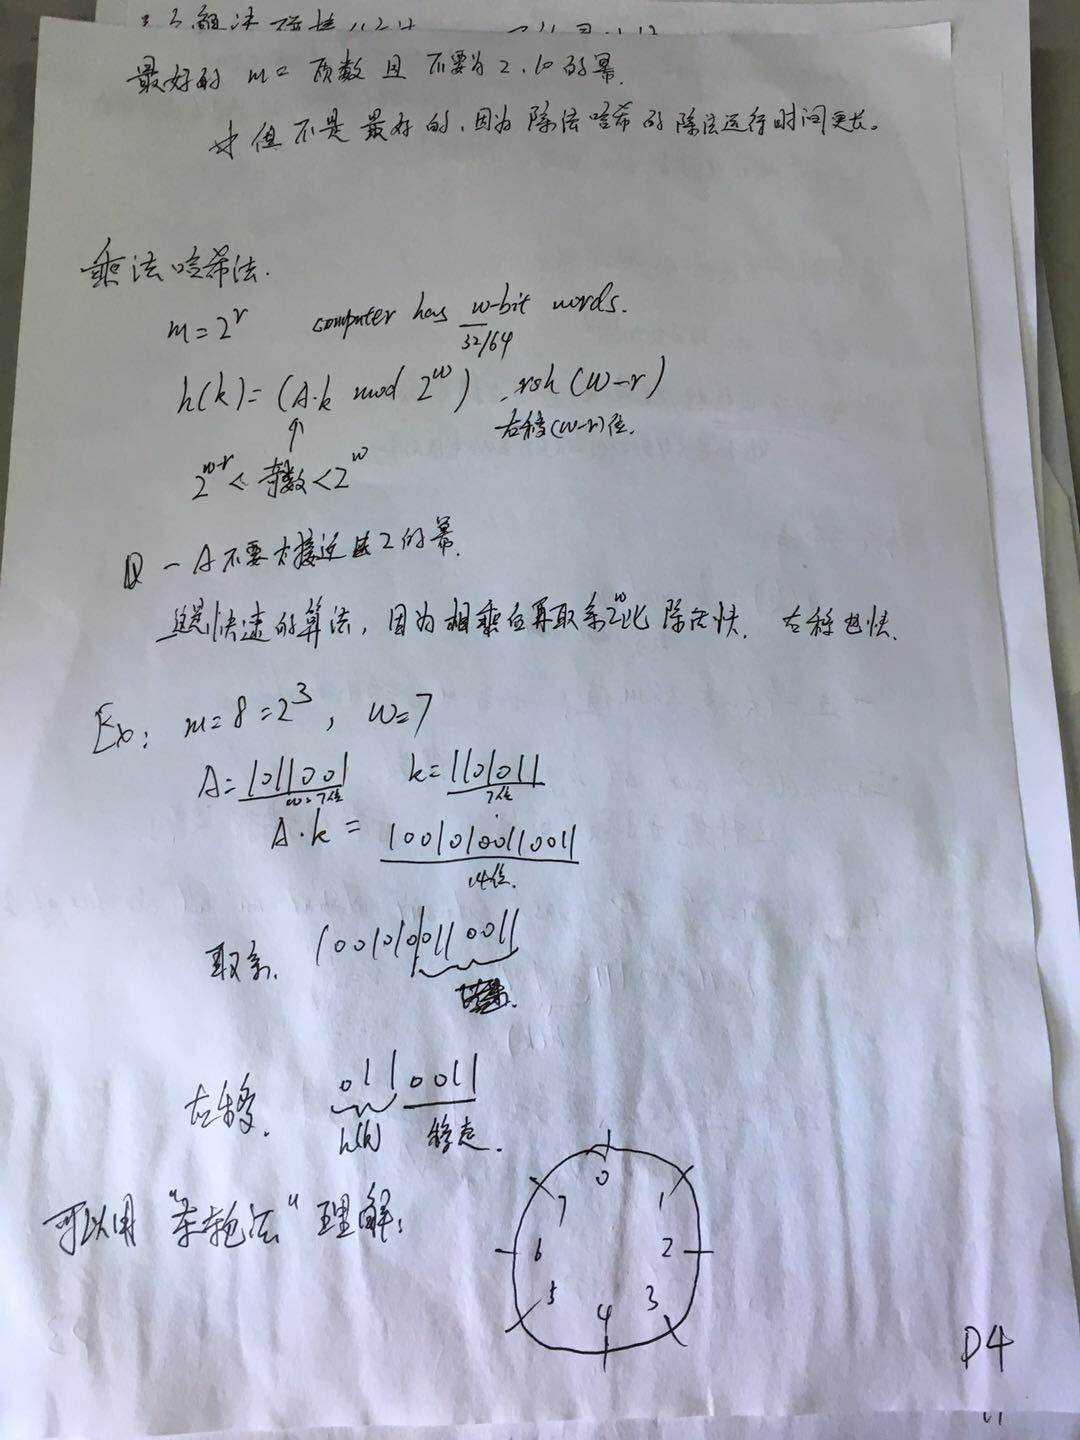 最好的 m = 质数 且 不要为 2.10 的幂.
但不是最好的,因为除法哈希的除法运行时间更长。
乘法哈希法.
m=2^r computer has w-bit words.
32/64
h(k)=(A·k mod 2^w) rsh (w-r)
右移(w-r)位.
2^{w-r} < 奇数 < 2^w
- A 不要太接近 2 的幂.
这是快速的算法, 因为相乘后再取余2^w比除法快. 右移也快.
Ex: m=8=2^3, w=7
A=1011001 k=1101011
w=7位 7位
A·k = 10010100110011
14位.
取余. 10010100110011
右移. 011 0011
h(k) 移走.
可以用 "车轮法" 理解:
0
7 1
6 2
5 3
4
P4